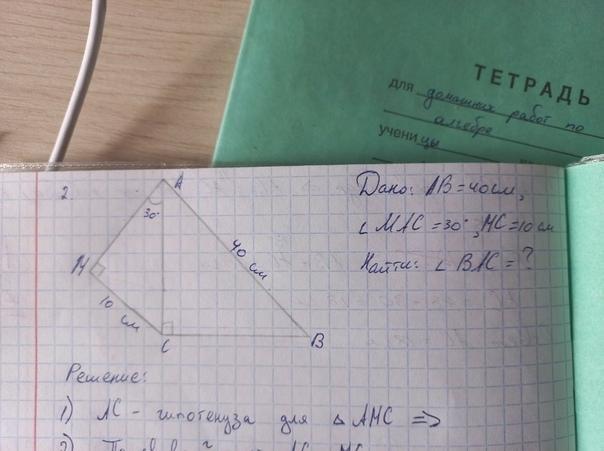 ТЕТРАДЬ
для домашних работ по
алгебре
учени цы
2.
A
30°
M
10 см
C
40 см
B
Дано: AB = 40 см,
∠ MAC = 30°, MC = 10 см
Найти: ∠ BAC = ?
Решение:
1) AC - гипотенуза для △ AMC =>
2)